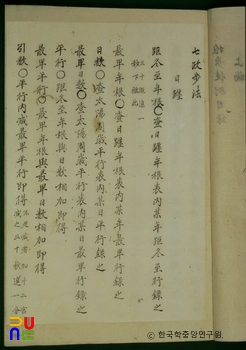 七政步法
日躔
距冬至年根○查日躔年根表內某年距冬至行錄之
三十微進一
秒下倣此
最卑年根○查日躔年根表內某年最卑行錄之
日數○查太陽周歲平行表內某日平行錄之
最卑日數○查太陽周歲平行表內某日最卑行錄之
平行○距冬至年根與日數相加卽得
最卑平行○最卑年根與最卑日數相加卽得
引數○平行內減最卑平行卽得
한국학중앙연구원